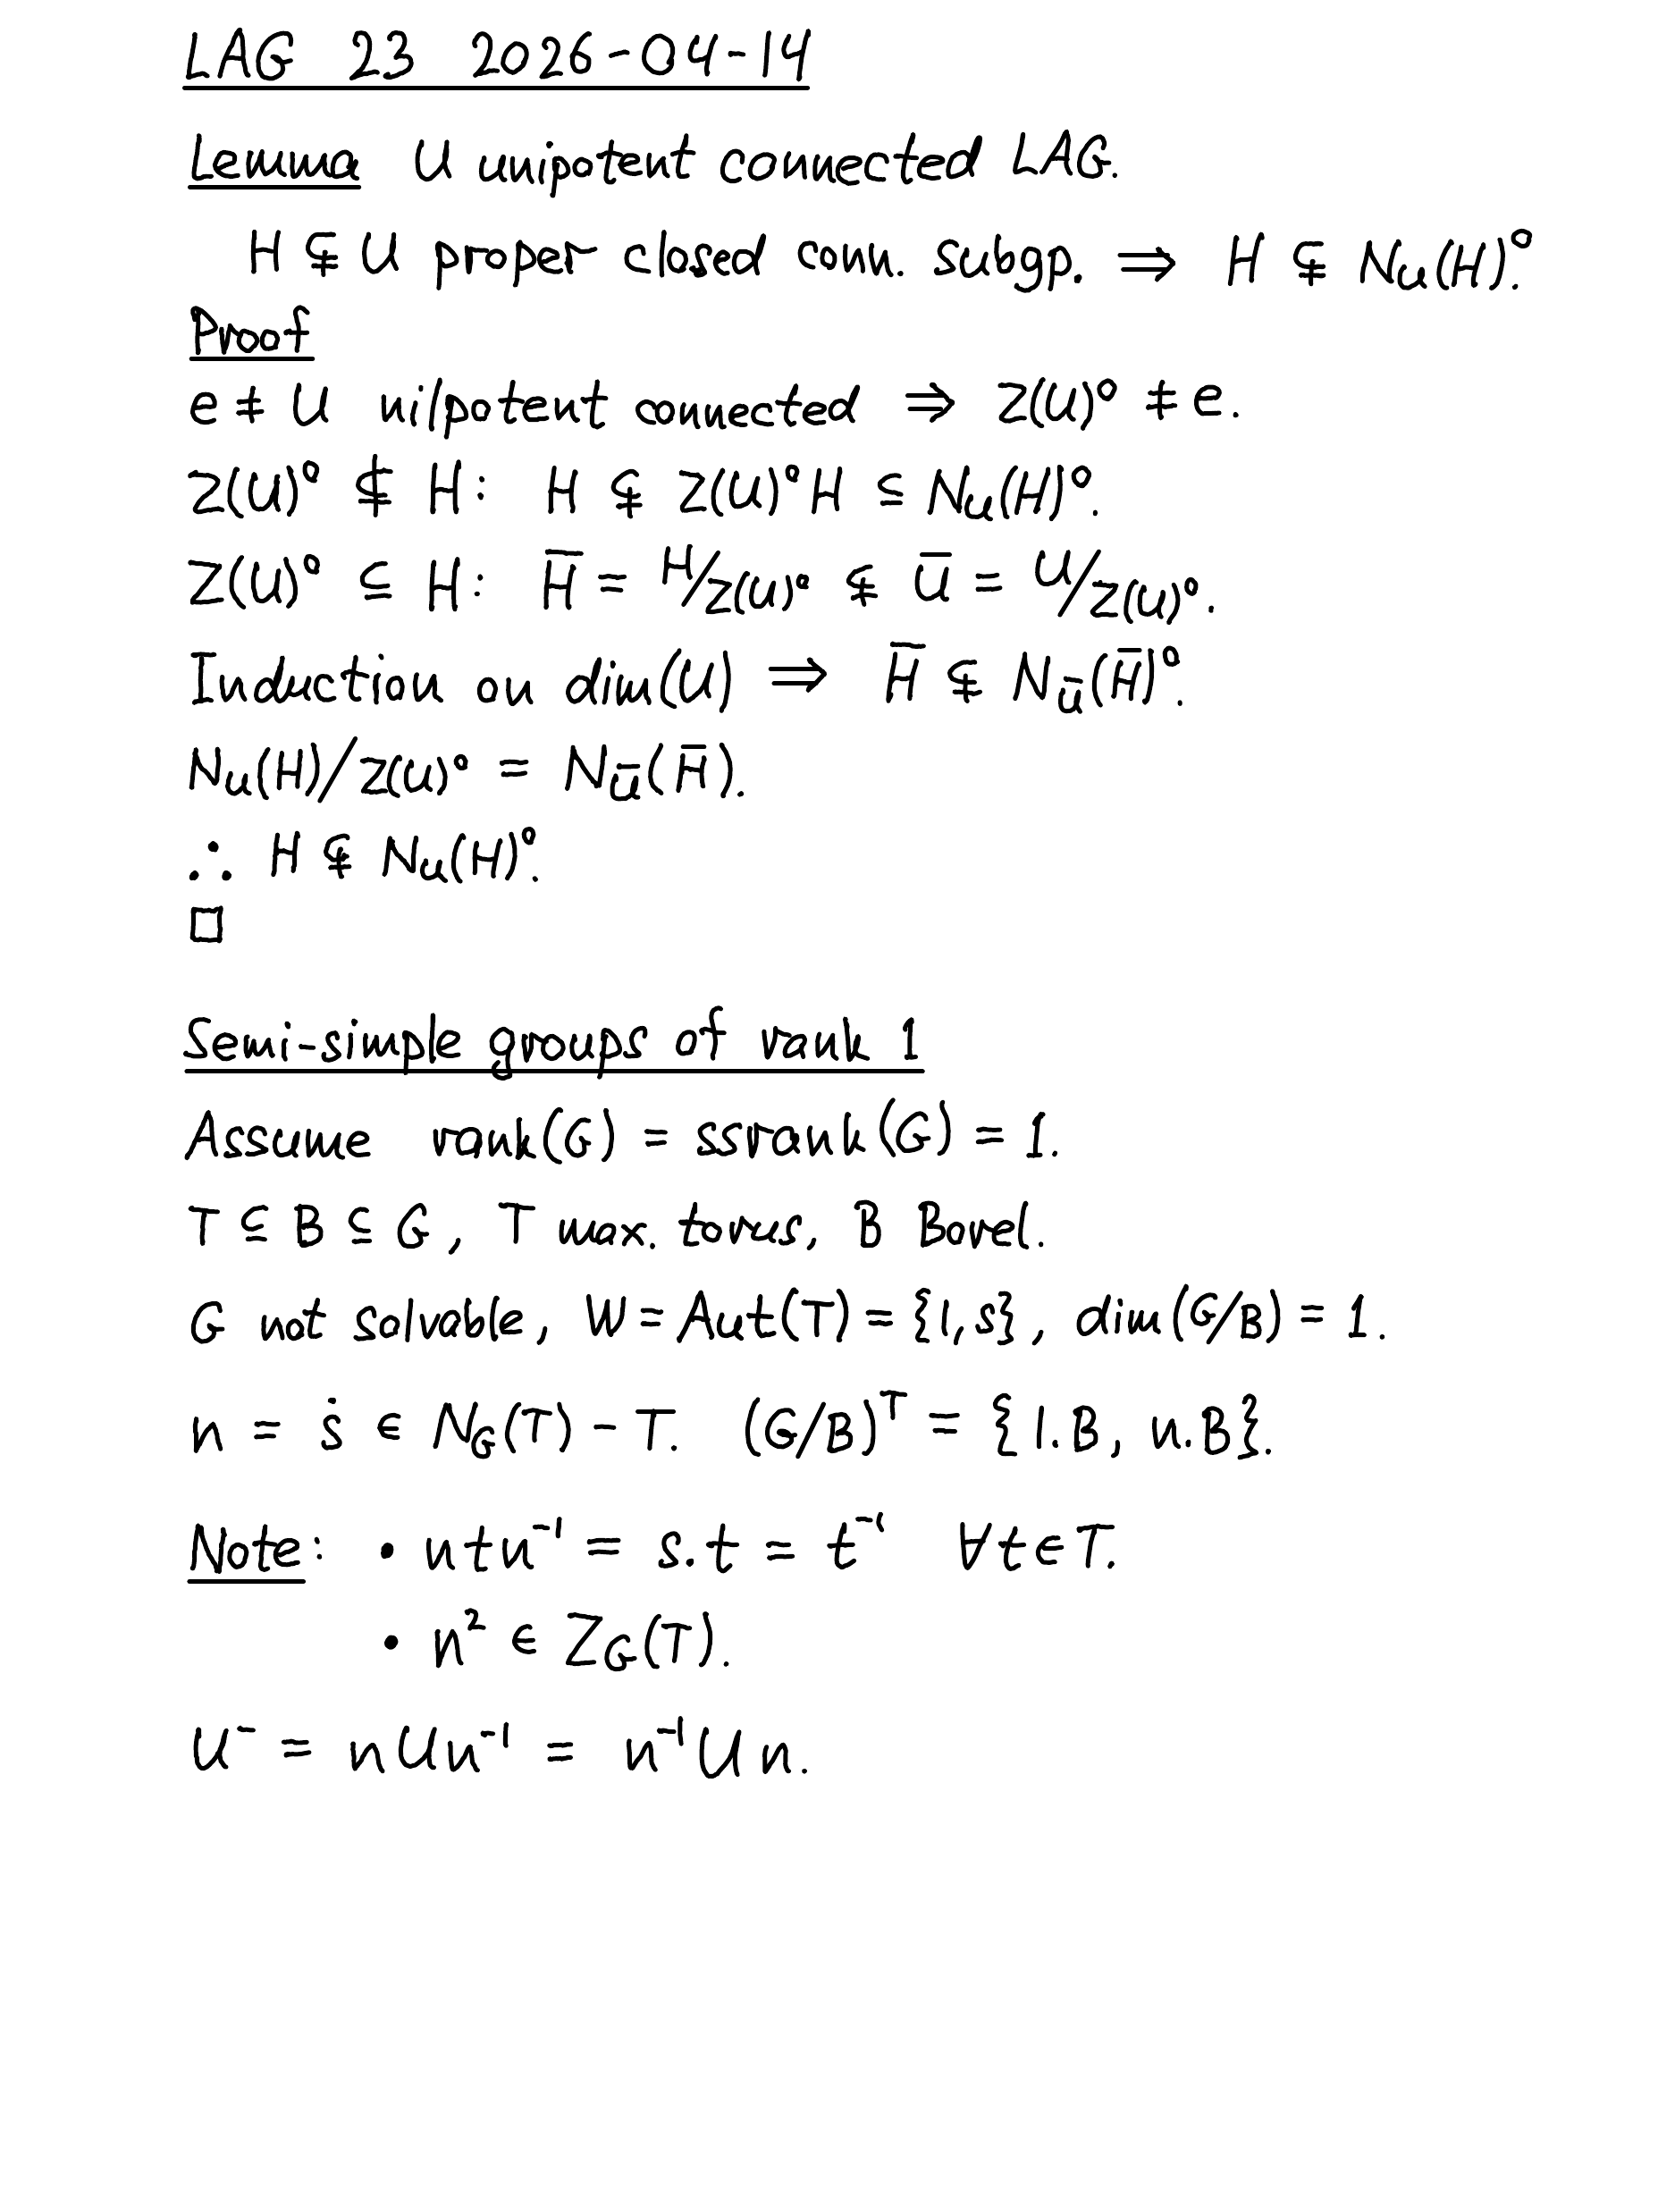 LAG 23 2026-04-14
Lemma U unipotent connected LAG.
H ⊊ U proper closed conn. subgp. ⇒ H ⊊ N_U(H)°.
Proof
e ≠ U nilpotent connected ⇒ Z(U)° ≠ e.
Z(U)° ⊄ H: H ⊊ Z(U)°H ⊆ N_U(H)°.
Z(U)° ⊆ H: H̅ = H/Z(U)° ⊊ U̅ = U/Z(U)°.
Induction on dim(U) ⇒ H̅ ⊊ N_U̅(H̅)°.
N_U(H)/Z(U)° = N_U̅(H̅).
∴ H ⊊ N_U(H)°.
□
Semi-simple groups of rank 1
Assume rank(G) = ssrank(G) = 1.
T ⊆ B ⊆ G, T max. torus, B Borel.
G not solvable, W = Aut(T) = {1,s}, dim(G/B) = 1.
n = ṡ ∈ N_G(T) - T. (G/B)^T = {1.B, n.B}.
Note: • ntn⁻¹ = s.t = t⁻¹ ∀t∈T.
• n² ∈ Z_G(T).
U⁻ = nUn⁻¹ = n⁻¹Un.